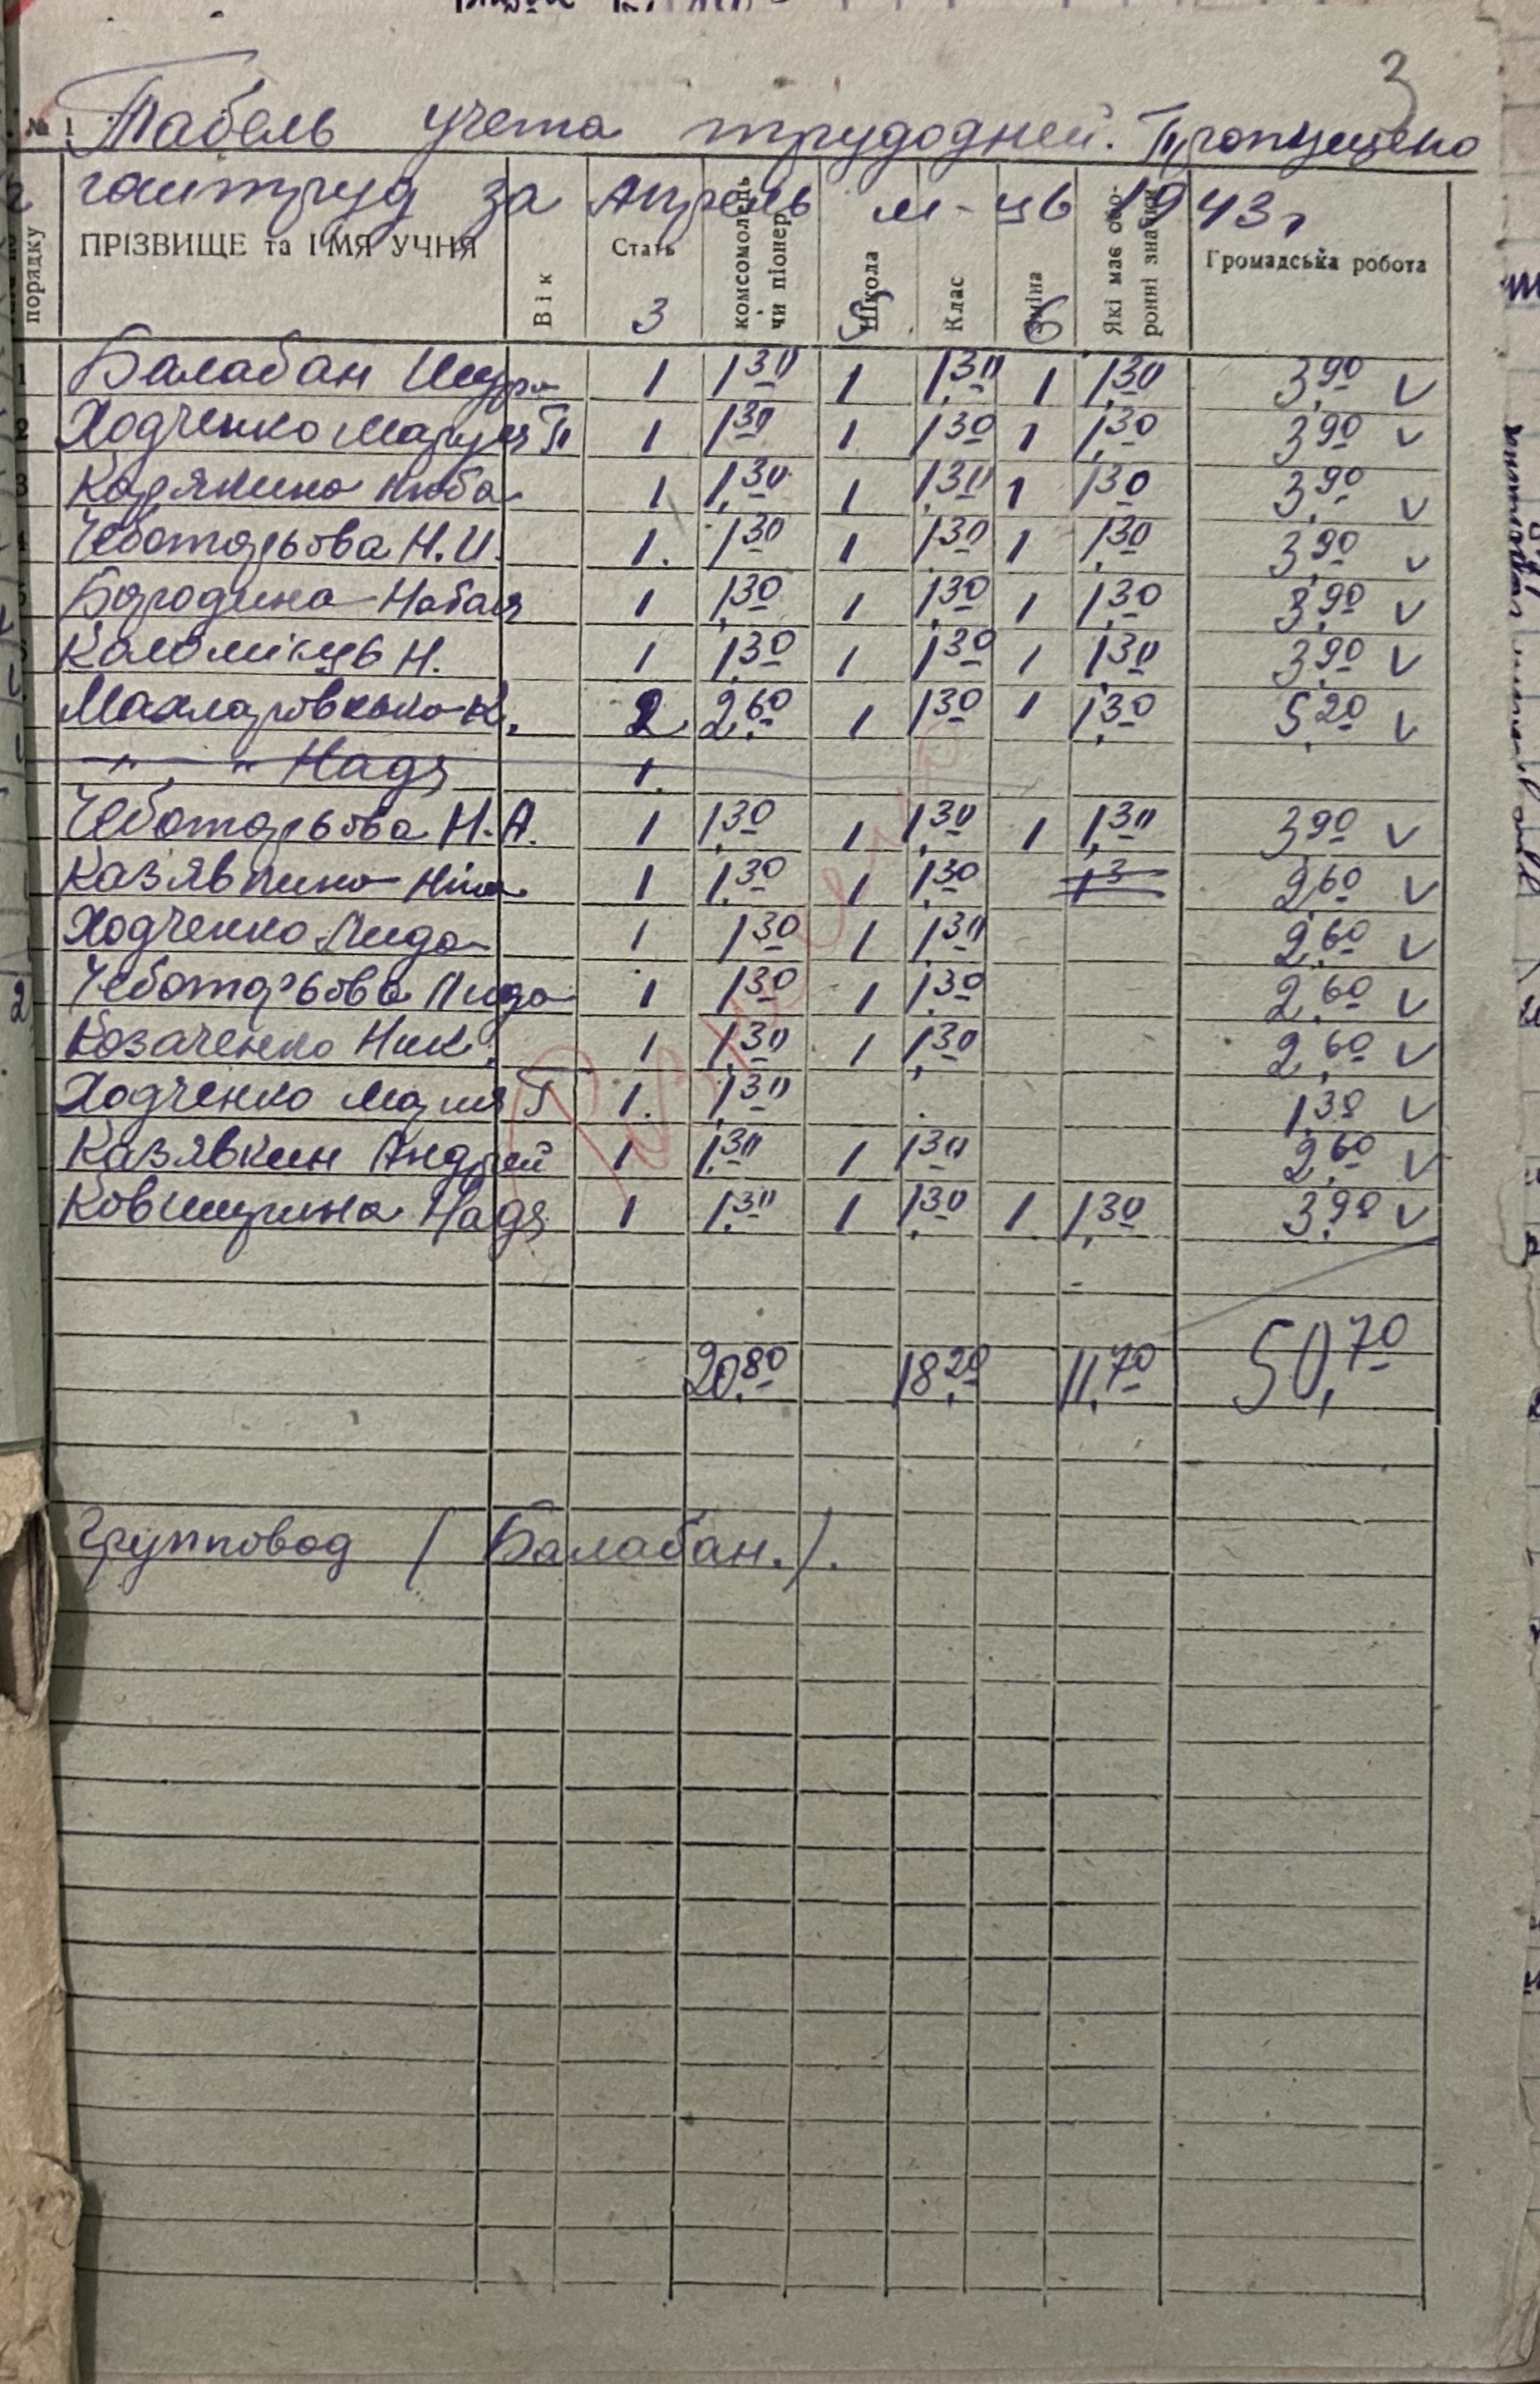 3
№ 1 Табель учета трудодней. Пропущено
гаитруд за Апрель м-ць 1943 г
порядку ПРІЗВИЩЕ та ІМЯ УЧНЯ Вік Стать комсомолець чи піонер Школа Клас Зміна Які має оборонні значки Громадська робота
3 5 6
1 Балабан Шура 1 1,30 1 1,30 1 1,30 3,90 v
2 Ходченко Маруся П 1 1,30 1 1,30 1 1,30 3,90 v
3 Карякина Люба 1 1,30 1 1,30 1 1,30 3,90 v
4 Чеботарьова Н.И. 1. 1,30 1 1,30 1 1,30 3,90 v
5 Бородина Наталя 1 1,30 1 1,30 1 1,30 3,90 v
Каломієць Н. 1 1,30 1 1,30 1 1,30 3,90 v
К. 2 2,60 1 1,30 1 1,30 5,20 v
" , " Надя 1.
Чеботарьова Н.А. 1 1,30 1 1,30 1 1,30 3,90 v
Казявкина Ніна 1 1,30 1 1,30 1 3 2,60 v
Ходченко Лида 1 1,30 1 1,30 2,60 v
Чеботарьова Лида 1 1,30 1 1,30 2,60 v
Козаченко Ник. 1 1,30 1 1,30 2,60 v
Ходченко Мария Г 1. 1,30 1,30 v
Казявкин Андрей 1 1,30 1 1,30 2,60 v
Надя 1 1,30 1 1,30 1 1,30 3,90 v
20,80 18,20 11,70 50,70
Групповод (Балабан.).